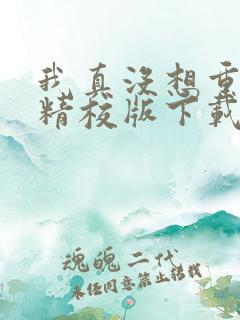 我真没想重
精校版下载
魂魄二代
未任同意禁止转载